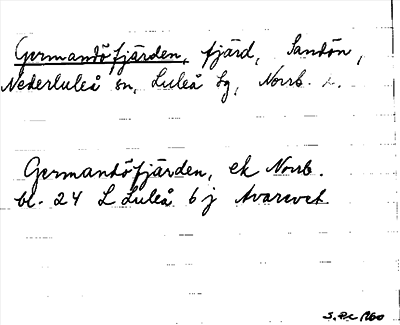 Germandöfjärden, fjärd, Sandön,
Nederluleå sn, Luleå sg, Norrb. L.
Germandöfjärden, ek Norrb.
bl. 24 L Luleå 6 j Avarvet